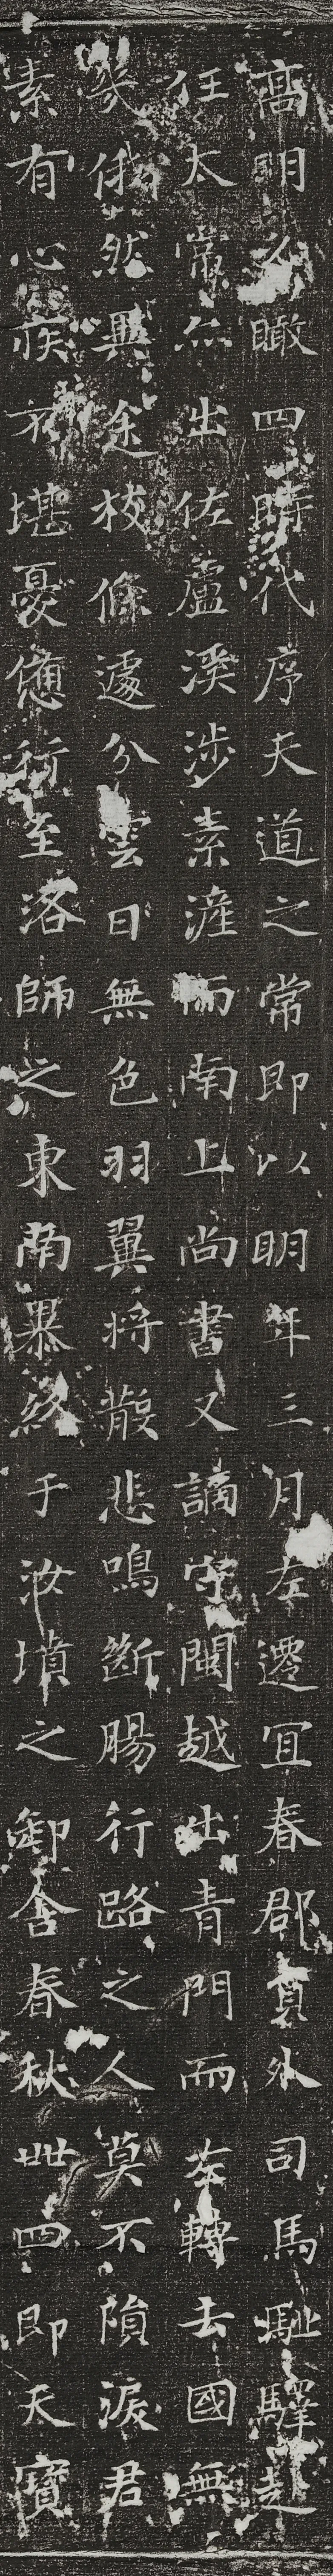 高明之瞰四時代序天道之常即以明年三月左遷宜春郡員外司馬馳驛赴
任太常亦出佐盧溪涉素滻而南上尚書又謫守閩越出青門而苹轉去國無
幾俄然異途枝條遽分雲日無色羽翼將散悲鳴斷腸行路之人莫不隕淚君
素有心疾不堪憂憊行至洛師之東南暴終于汝墳之卸舍春秋卌四即天寶